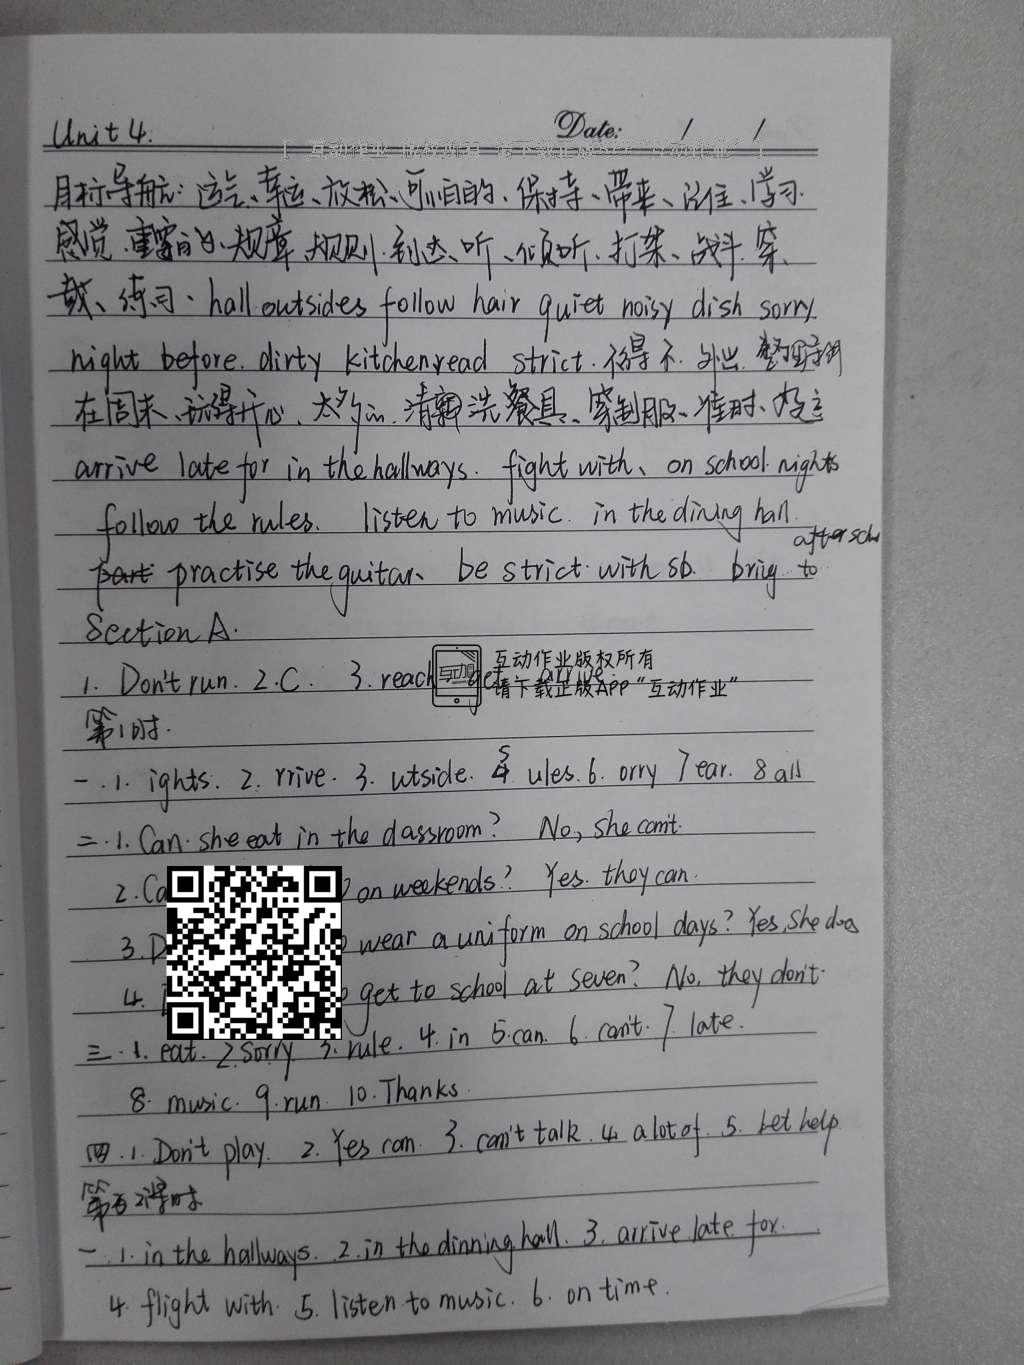 Unit 4.
Date: / /
目标导航: 运气、幸运、放松、可怕的、保持、带来、记住、学习
感觉、重要的、规章、规则、到达、听、倾听、打架、战斗、穿、
戴、练习、hall outsides follow hair quiet noisy dish sorry
night before. dirty kitchen read strict. 不得不. 外出.
在周末、玩得开心、太多的、清 洗餐具、穿制服、准时、
arrive late for in the hallways. fight with、on school nights
follow the rules. listen to music. in the dining hall.
after
practise the guitar、 be strict with sb. bring to
Section A.
1. Don't run. 2. C. 3. reach get arrive.
互动作业版权所有
请下载正版APP“互动作业”
第1时.
一.1. ights. 2. rrive. 3. utside. 5 ules. 6. orry 7 ear. 8 all
二.1. Can she eat in the classroom? No, she can't.
2. Ca on weekends? Yes. they can.
3. D wear a uniform on school days? Yes, she does
4. get to school at seven? No, they don't.
三.1. eat. 2. sorry 3. rule. 4. in 5. can. 6. can't. 7. late.
8. music. 9. run. 10. Thanks.
四.1. Don't play. 2. Yes can. 3. can't talk. 4. a lot of. 5. Let help
第2课时
一.1. in the hallways. 2. in the dinning hall. 3. arrive late for.
4. flight with. 5. listen to music. 6. on time.